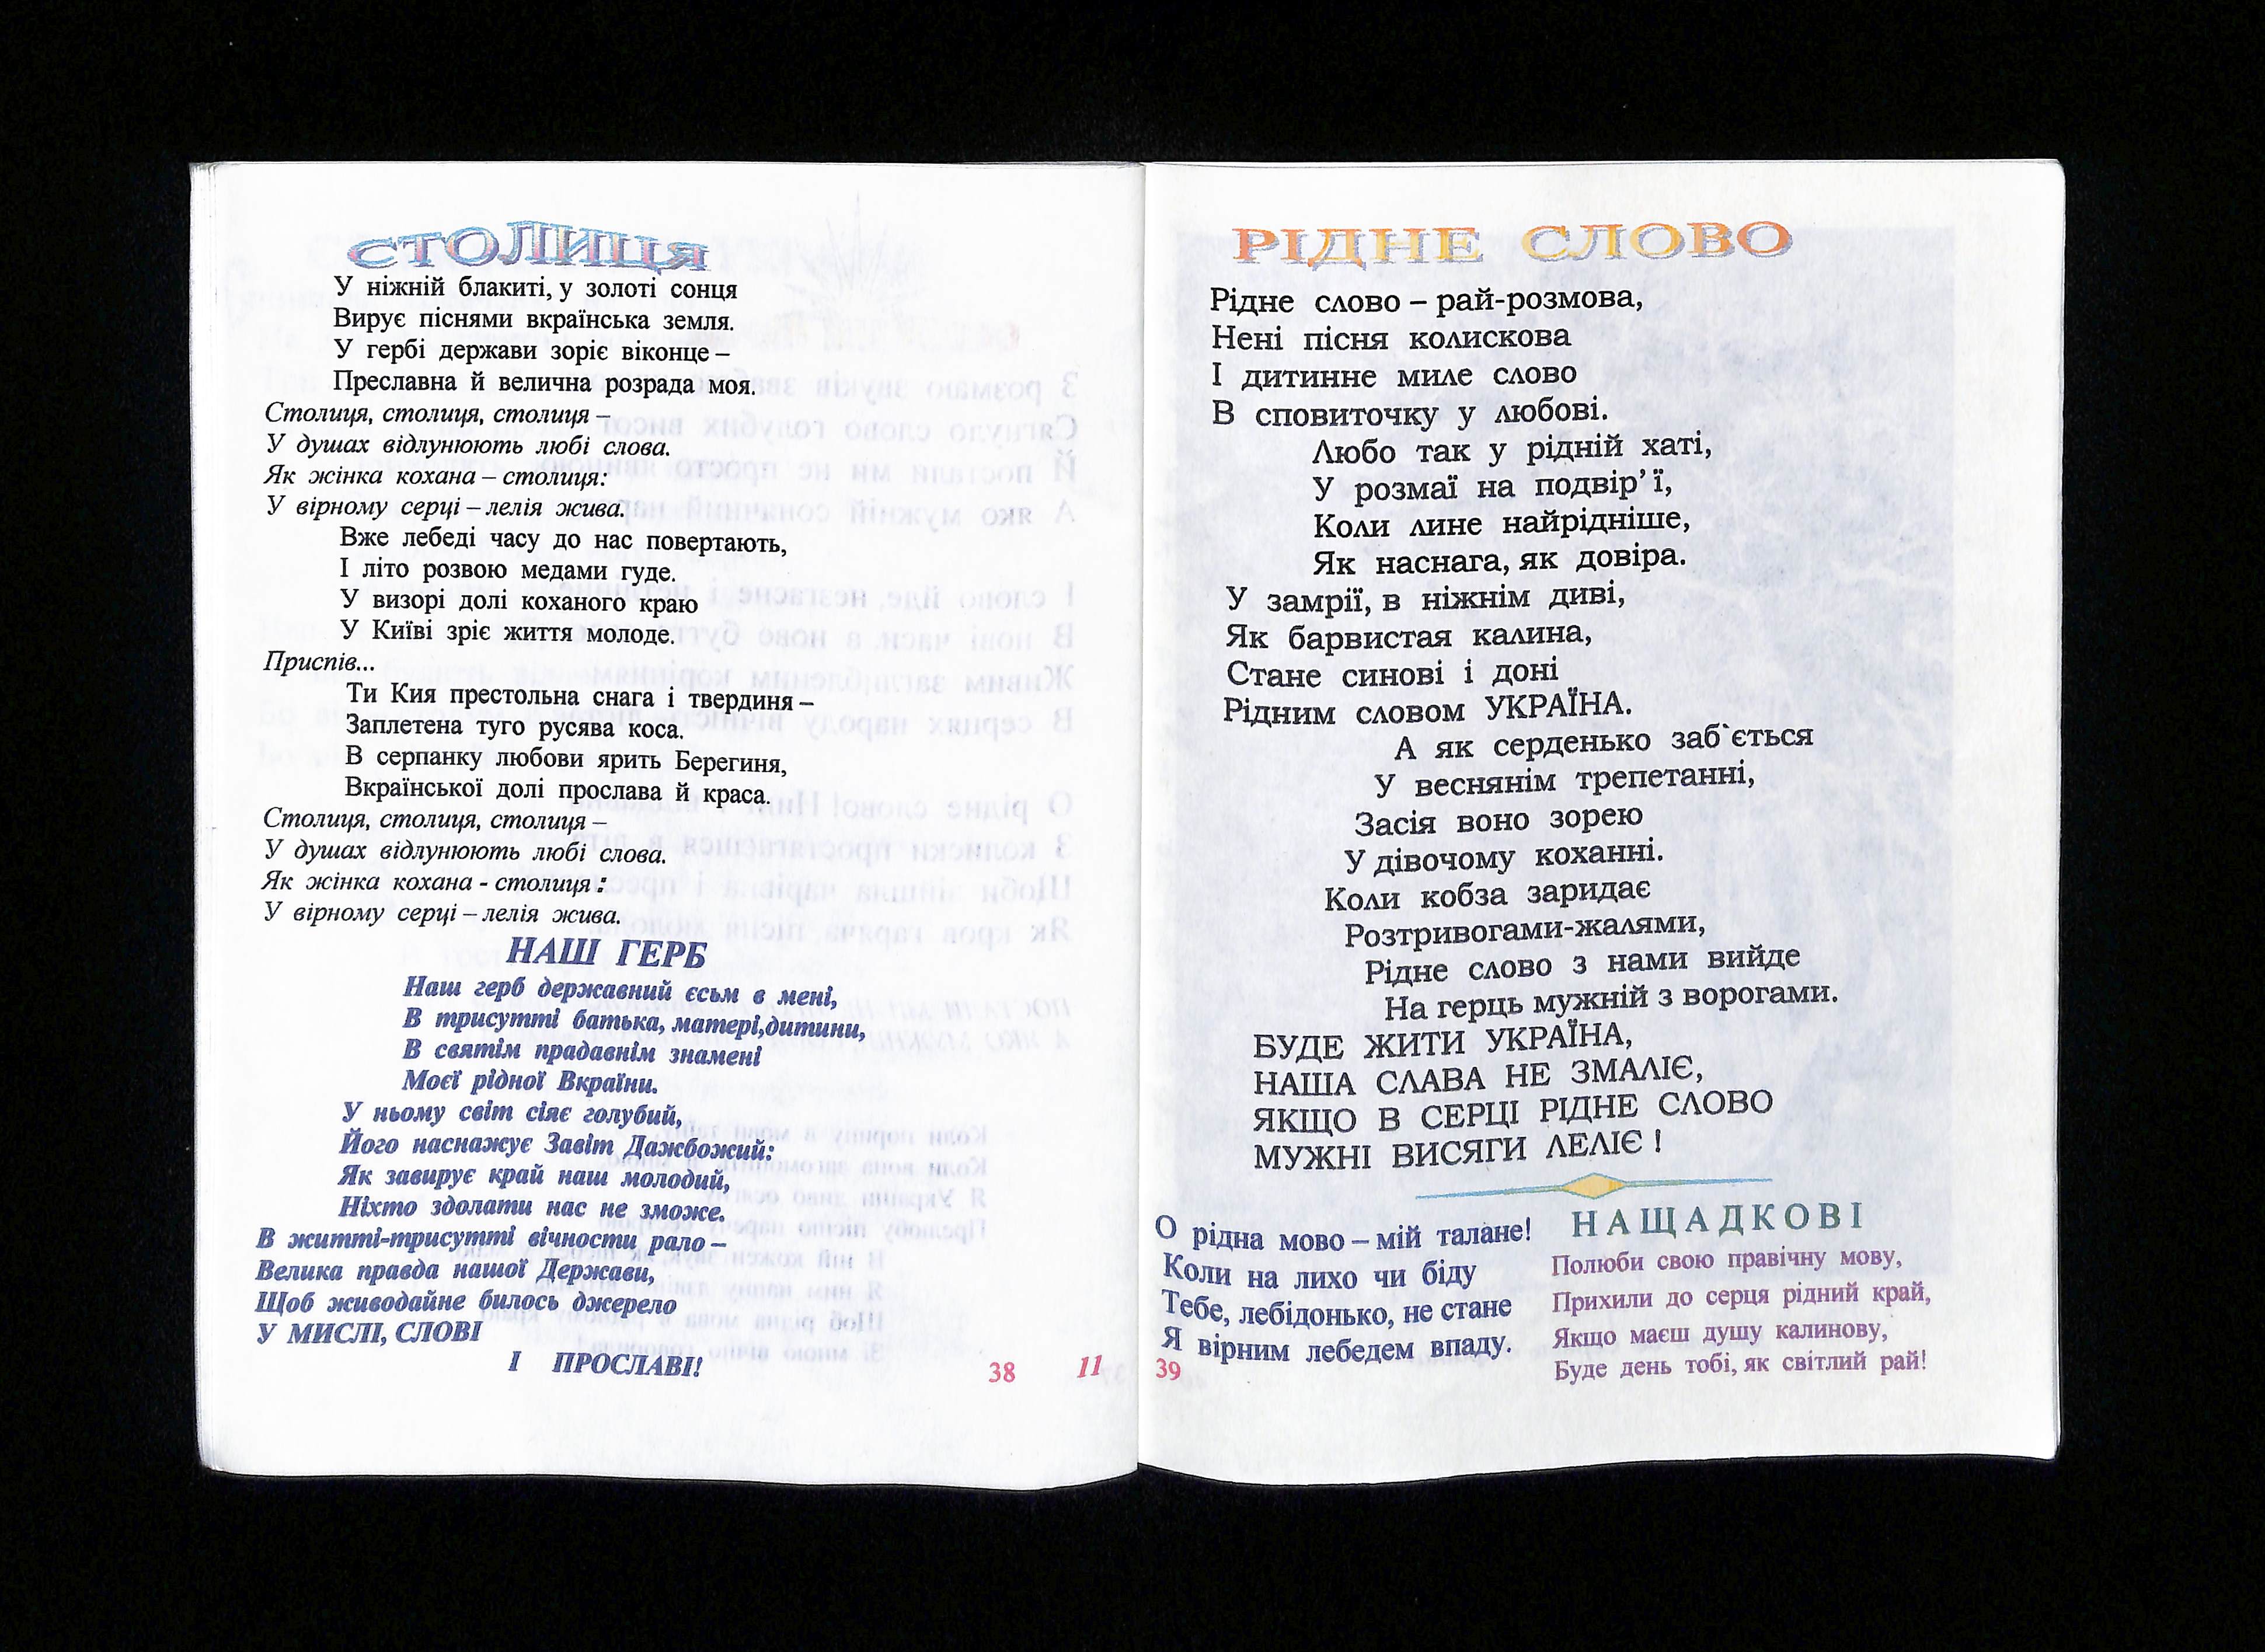 СТОЛИЦЯ
У ніжній блакиті, у золоті сонця
Вирує піснями вкраїнська земля.
У гербі держави зоріє віконце –
Преславна й велична розрада моя.
Столиця, столиця, столиця –
У душах відлунюють любі слова.
Як жінка кохана – столиця:
У вірному серці – лелія жива.
Вже лебеді часу до нас повертають,
І літо розвою медами гуде.
У визорі долі коханого краю
У Київі зріє життя молоде.
Приспів...
Ти Кия престольна снага і твердиня –
Заплетена туго русява коса.
В серпанку любови ярить Берегиня,
Вкраїнської долі прослава й краса.
Столиця, столиця, столиця –
У душах відлунюють любі слова.
Як жінка кохана - столиця :
У вірному серці – лелія жива.
НАШ ГЕРБ
Наш герб державний єсьм в мені,
В трисутті батька, матері,дитини,
В святім прадавнім знамені
Моєї рідної Вкраїни.
У ньому світ сіяє голубий,
Його наснажує Завіт Дажбожий:
Як завирує край наш молодий,
Ніхто здолати нас не зможе.
В житті-трисутті вічности рало –
Велика правда нашої Держави,
Щоб живодайне билось джерело
У МИСЛІ, СЛОВІ
І ПРОСЛАВІ!
38 11
РІДНЕ СЛОВО
Рідне слово – рай-розмова,
Нені пісня колискова
І дитинне миле слово
В сповиточку у любові.
Любо так у рідній хаті,
У розмаї на подвір’ї,
Коли лине найрідніше,
Як наснага, як довіра.
У замрії, в ніжнім диві,
Як барвистая калина,
Стане синові і доні
Рідним словом УКРАЇНА.
А як серденько заб`ється
У веснянім трепетанні,
Засія воно зорею
У дівочому коханні.
Коли кобза заридає
Розтривогами-жалями,
Рідне слово з нами вийде
На герць мужній з ворогами.
БУДЕ ЖИТИ УКРАЇНА,
НАША СЛАВА НЕ ЗМАЛІЄ,
ЯКЩО В СЕРЦІ РІДНЕ СЛОВО
МУЖНІ ВИСЯГИ ЛЕЛІЄ !
О рідна мово – мій талане!
Коли на лихо чи біду
Тебе, лебідонько, не стане
Я вірним лебедем впаду.
НАЩАДКОВІ
Полюби свою правічну мову,
Прихили до серця рідний край,
Якщо маєш душу калинову,
Буде день тобі, як світлий рай!
39